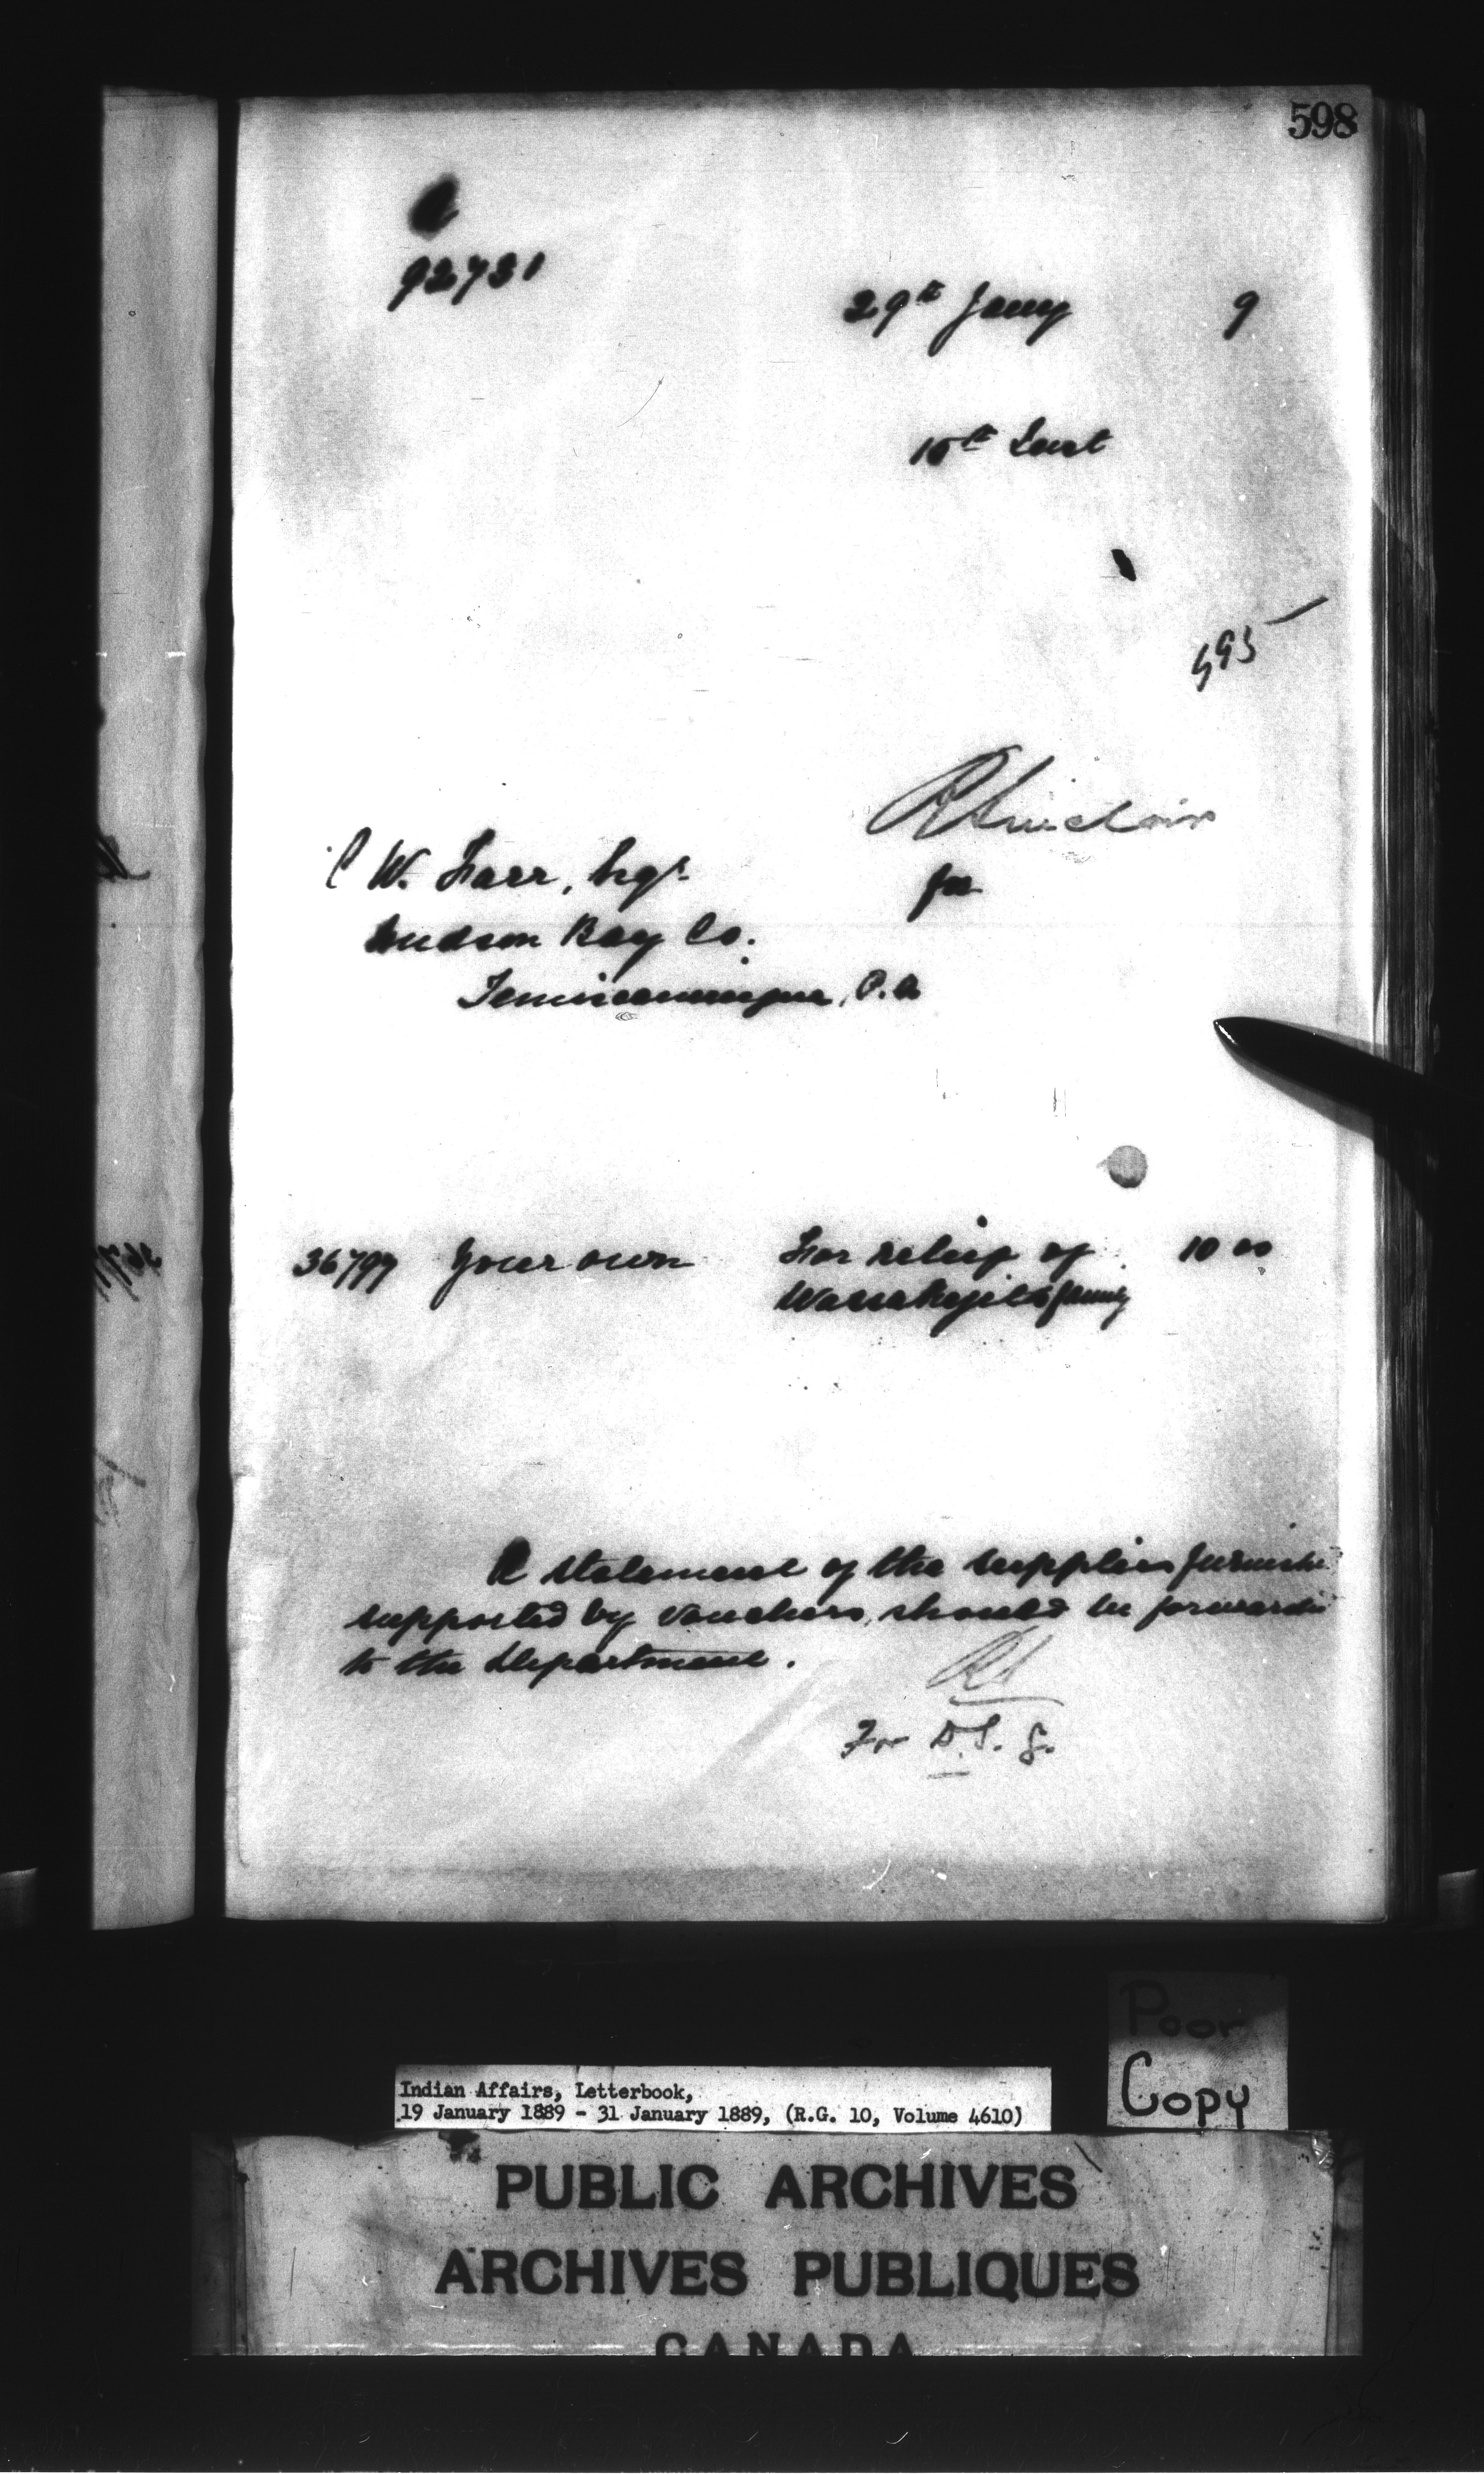 598
92731
29th Jany 9
15th Inst
595
R Sinclair
C W. Farr, Esqr
for
Hudson Bay Co.
Temiscamingue, P.Q
36799 Your own For relief of 10 00
family
A statement of the supplies furnishe
supported by vouchers, should be forwarde
to the Department.
RS
For D.S.G.
Poor
Copy
Indian Affairs, Letterbook,
19 January 1889 - 31 January 1889, (R.G. 10, Volume 4610)
PUBLIC ARCHIVES
ARCHIVES PUBLIQUES
CANADA